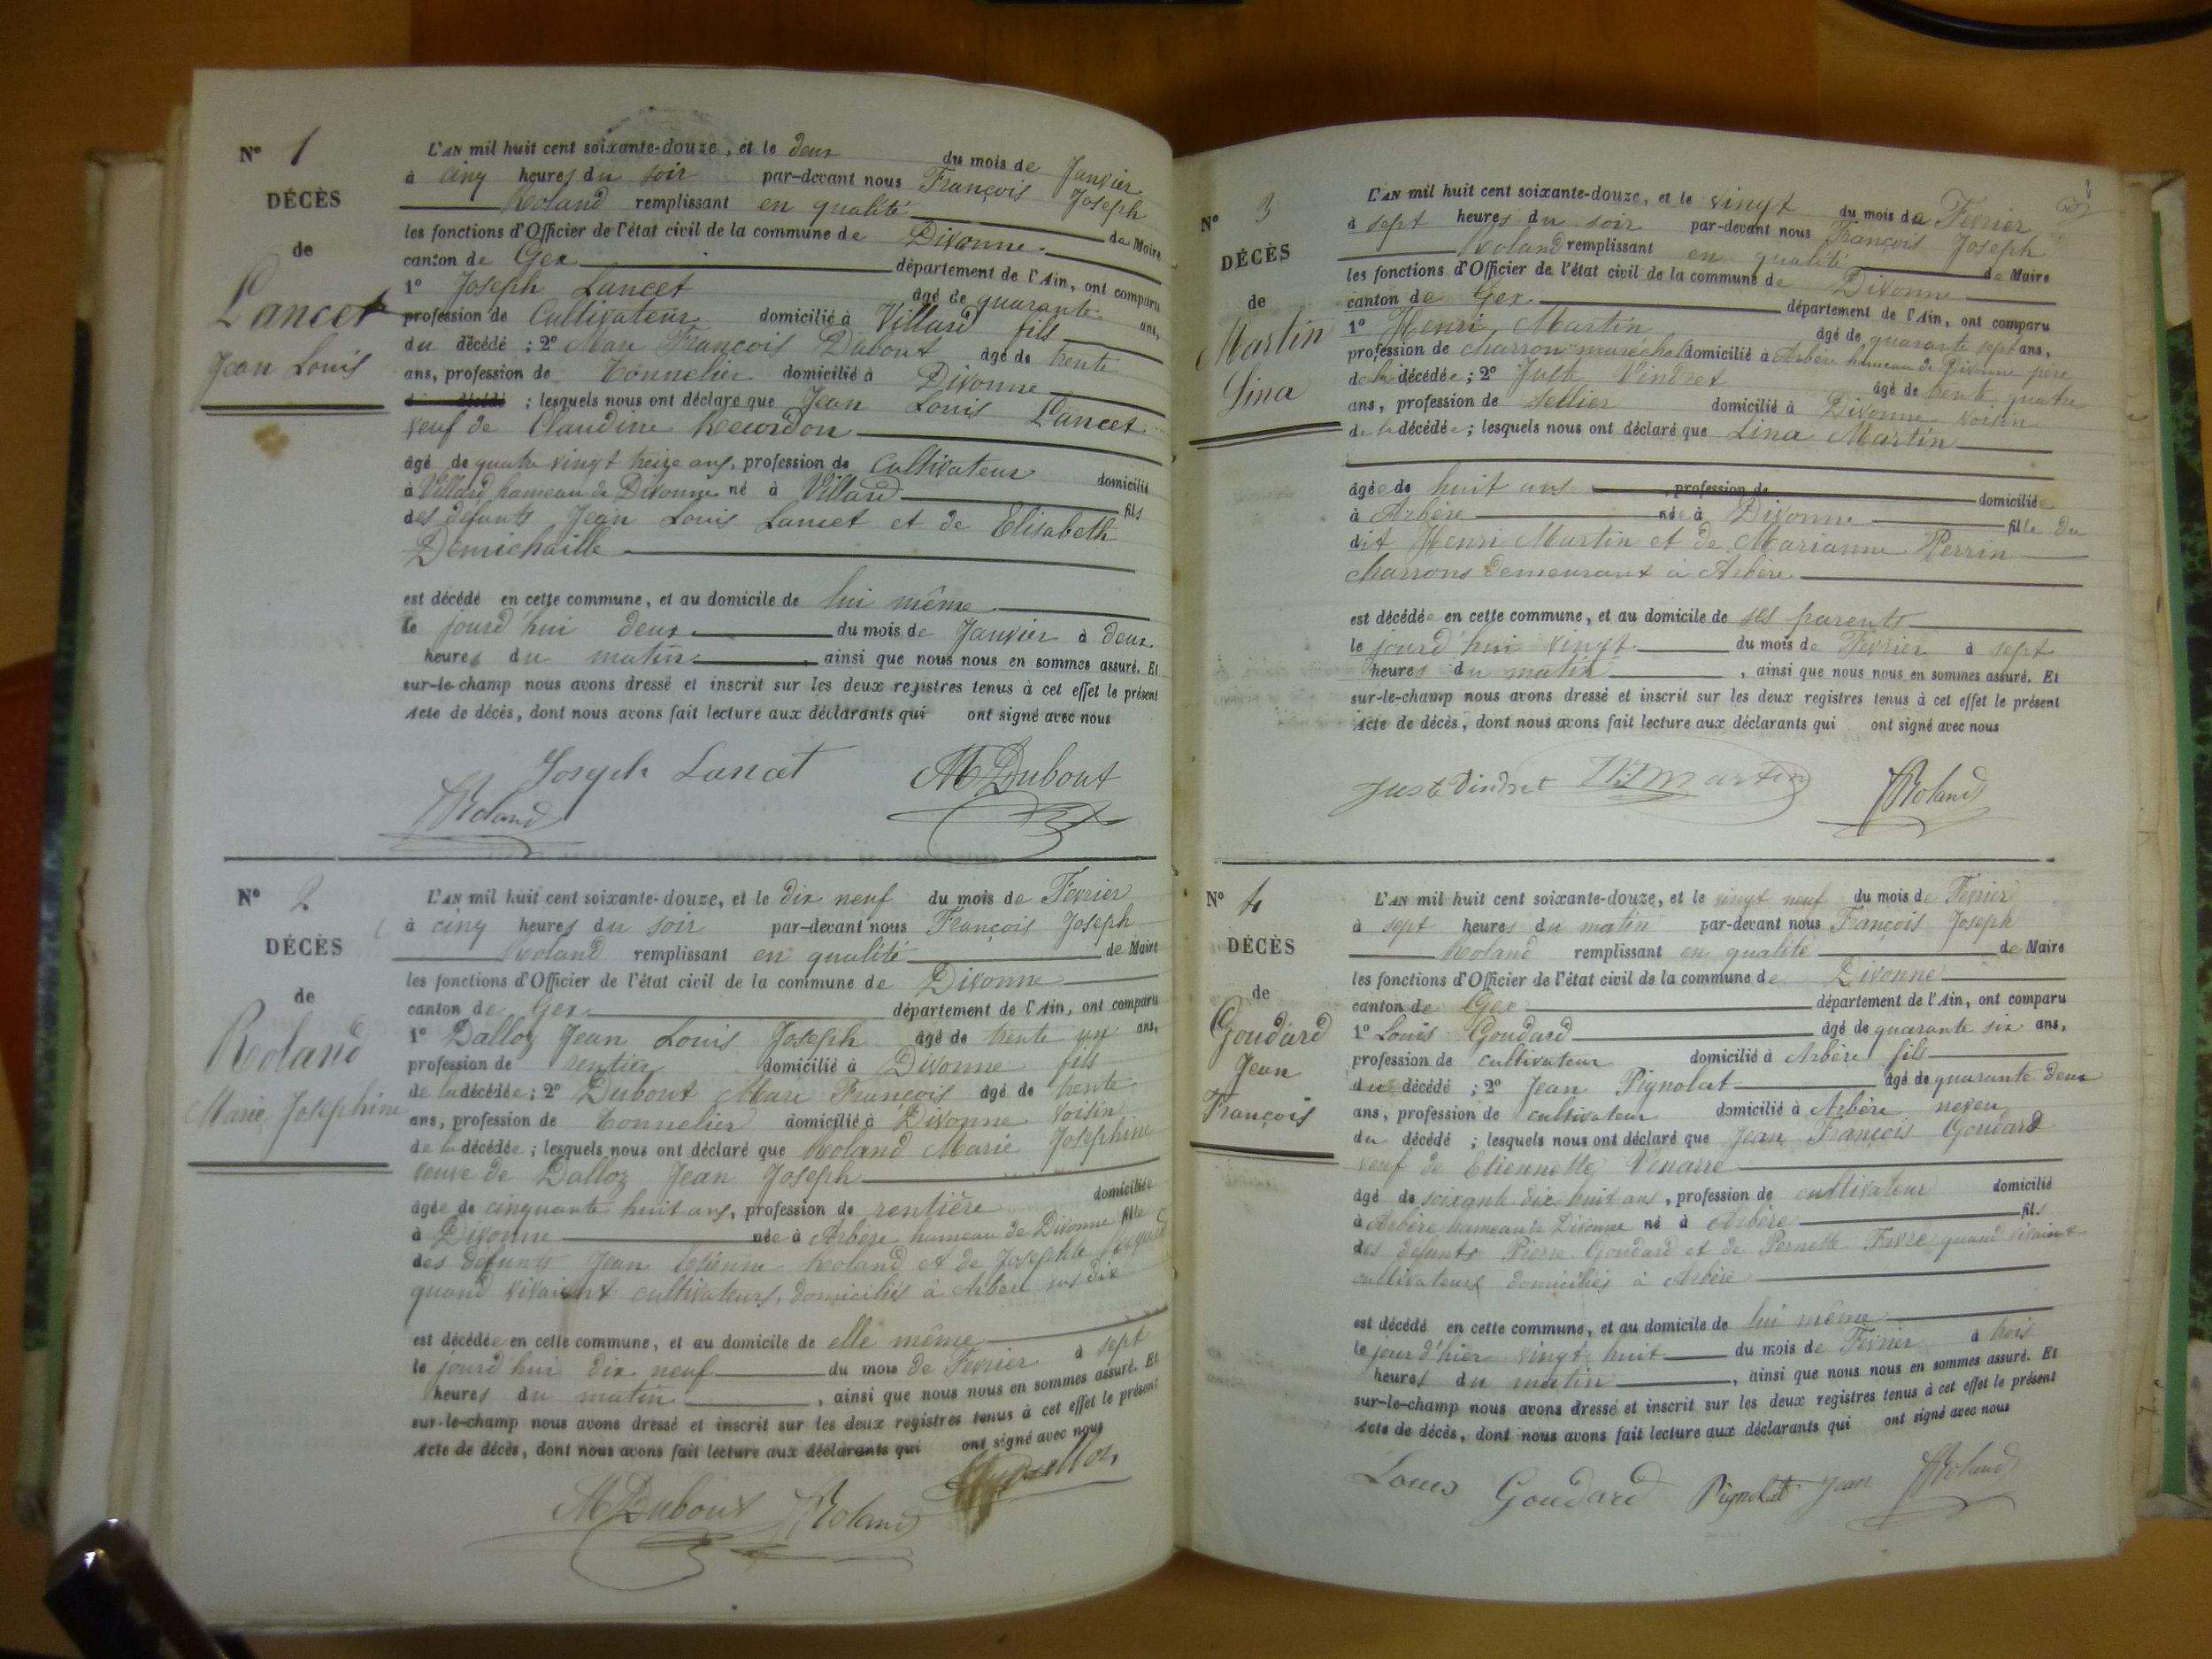 N° 1
DÉCÈS
de
Lancet
Jean Louis
L'AN mil huit cent soixante-douze, et le deux du mois de Janvier
à cinq heures du soir par-devant nous François Joseph
Roland remplissant en qualité de Maire
les fonctions d'Officier de l'état civil de la commune de Divonne
canton de Gex département de l'Ain, ont comparu
1° Joseph Lancet âgé de quarante ans,
profession de Cultivateur domicilié à Villard fils
du décédé ; 2° Marc François Dubout âgé de trente
ans, profession de Tonnelier domicilié à Divonne
du décédé ; lesquels nous ont déclaré que Jean Louis Lancet
veuf de Claudine Recordon
âgé de quatre vingt treize ans, profession de Cultivateur domicilié
à Villard hameau de Divonne né à Villard fils
des défunts Jean Louis Lancet et de Elisabeth
Demichaille
est décédé en cette commune, et au domicile de lui même
le jourd'hui deux du mois de Janvier à deux
heures du matin ainsi que nous nous en sommes assuré. Et
sur-le-champ nous avons dressé et inscrit sur les deux registres tenus à cet effet le présent
Acte de décès, dont nous avons fait lecture aux déclarants qui ont signé avec nous
Joseph Lancet M Dubout
Roland
N° 2
DÉCÈS
de
Roland
Marie Josephine
L'AN mil huit cent soixante-douze, et le dix neuf du mois de Fevrier
à cinq heures du soir par-devant nous François Joseph
Roland remplissant en qualité de Maire
les fonctions d'Officier de l'état civil de la commune de Divonne
canton de Gex département de l'Ain, ont comparu
1° Dalloz Jean Louis Joseph âgé de trente un ans,
profession de rentier domicilié à Divonne fils
de la décédée ; 2° Dubout Marc François âgé de trente
ans, profession de Tonnelier domicilié à Divonne voisin
de la décédée ; lesquels nous ont déclaré que Roland Marie Josephine
veuve de Dalloz Jean Joseph
âgée de cinquante huit ans, profession de rentière domiciliée
à Divonne née à Arbère hameau de Divonne fille
des défunts Jean Etienne Roland et de Josephte
quand vivaient cultivateurs, domiciliés à Arbère sus dix
est décédée en cette commune, et au domicile de elle même
le jourd'hui dix neuf du mois de Fevrier à sept
heures du matin, ainsi que nous nous en sommes assuré. Et
sur-le-champ nous avons dressé et inscrit sur les deux registres tenus à cet effet le présent
Acte de décès, dont nous avons fait lecture aux déclarants qui ont signé avec nous
M Dubout Roland
N° 3
DÉCÈS
de
Martin
Lina
L'AN mil huit cent soixante-douze, et le vingt du mois de Fevrier
à sept heures du soir par-devant nous François Joseph
Roland remplissant en qualité de Maire
les fonctions d'Officier de l'état civil de la commune de Divonne
canton de Gex département de l'Ain, ont comparu
1° Henri Martin âgé de quarante sept ans,
profession de charron maréchal domicilié à Arbère hameau de Divonne père
de la décédée ; 2° Juste Vindret âgé de trente quatre
ans, profession de sellier domicilié à Divonne voisin
de la décédée ; lesquels nous ont déclaré que Lina Martin
âgée de huit ans, profession de domiciliée
à Arbère née à Divonne fille du
dit Henri Martin et de Marianne Perrin
charrons demeurant à Arbère
est décédée en cette commune, et au domicile de ses parents
le jourd'hui vingt du mois de Fevrier à sept
heures du matin, ainsi que nous nous en sommes assuré. Et
sur-le-champ nous avons dressé et inscrit sur les deux registres tenus à cet effet le présent
Acte de décès, dont nous avons fait lecture aux déclarants qui ont signé avec nous
Juste Vindret Martin Roland
N° 4
DÉCÈS
de
Goudard
Jean
François
L'AN mil huit cent soixante-douze, et le vingt neuf du mois de Fevrier
à sept heures du matin par-devant nous François Joseph
Roland remplissant en qualité de Maire
les fonctions d'Officier de l'état civil de la commune de Divonne
canton de Gex département de l'Ain, ont comparu
1° Louis Goudard âgé de quarante six ans,
profession de cultivateur domicilié à Arbère fils
du décédé ; 2° Jean Pignolat âgé de quarante deux
ans, profession de cultivateur domicilié à Arbère neveu
du décédé ; lesquels nous ont déclaré que Jean François Goudard
veuf de Etiennette
âgé de soixante dix huit ans, profession de cultivateur domicilié
à Arbère hameau de Divonne né à Arbère fils
des défunts Pierre Goudard et de Pernette Fevre quand vivaient
cultivateurs domiciliés à Arbère
est décédé en cette commune, et au domicile de lui même
le jour d'hier vingt huit du mois de Fevrier à trois
heures du matin, ainsi que nous nous en sommes assuré. Et
sur-le-champ nous avons dressé et inscrit sur les deux registres tenus à cet effet le présent
Acte de décès, dont nous avons fait lecture aux déclarants qui ont signé avec nous
Louis Goudard Pignolat Jean Roland